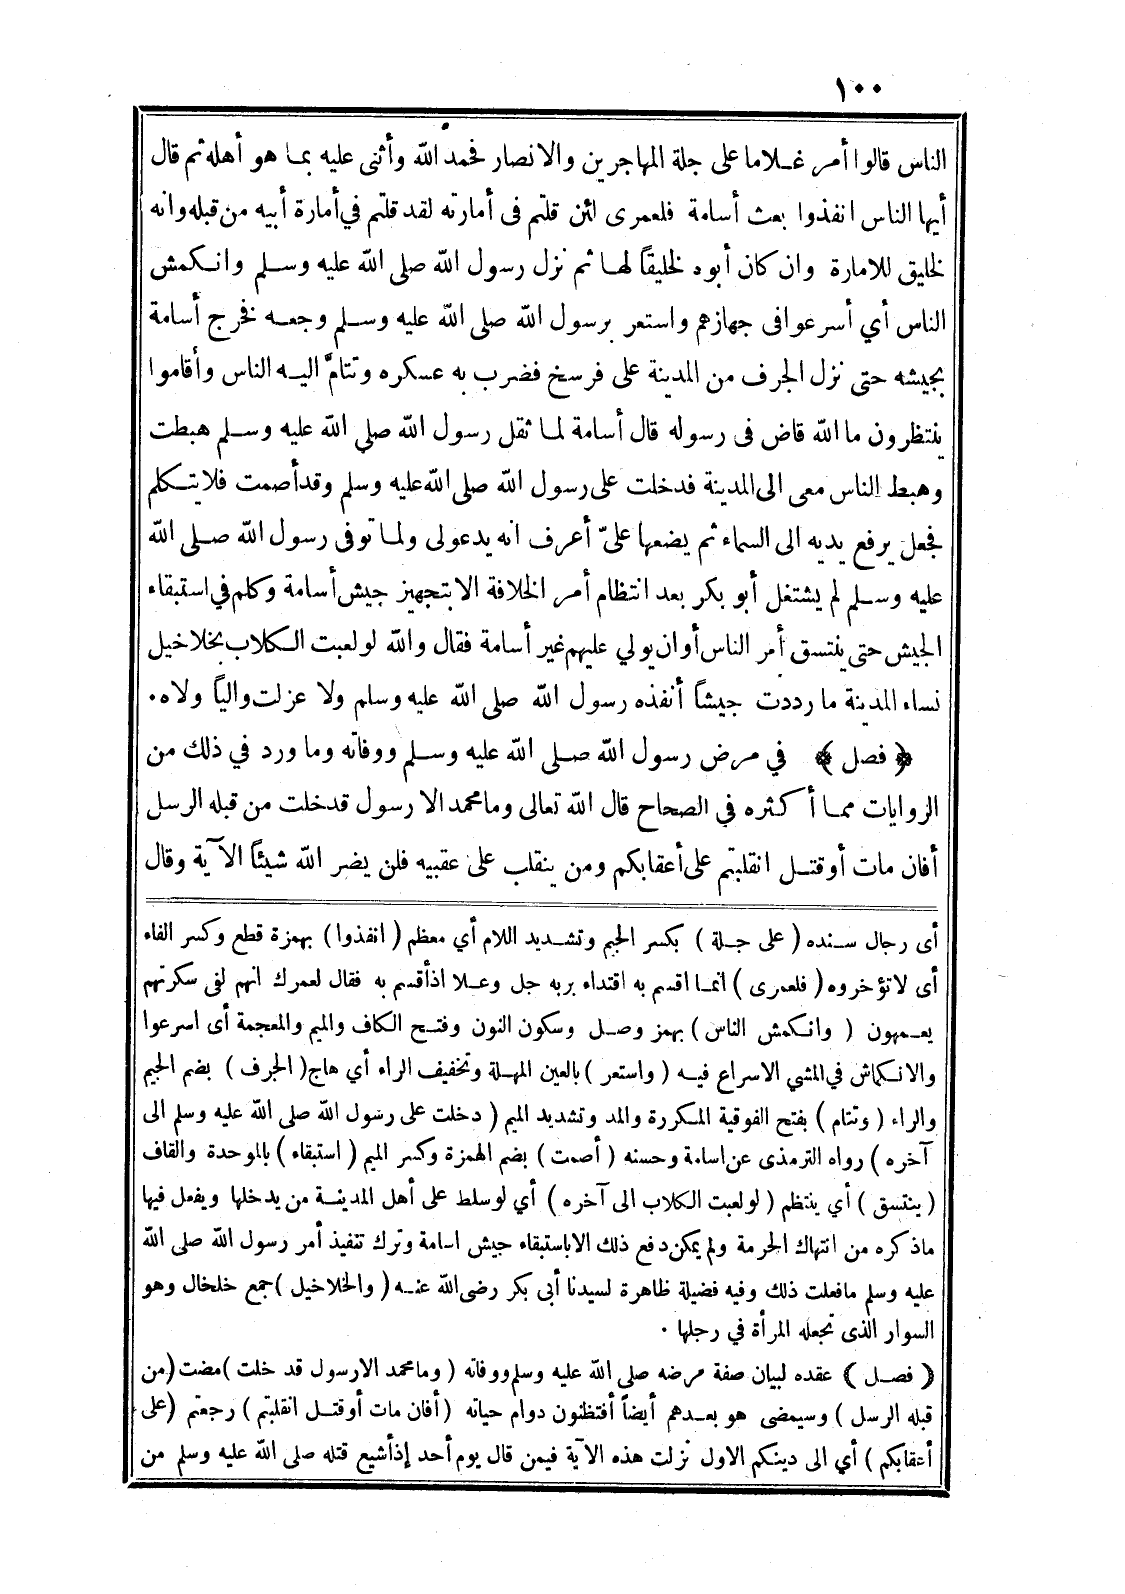 ١٠٠
الناس قالوا أمر غـلاما على جلة المهاجرين والانصار فحمد الله وأثنى عليه بمـا هو أهله ثم قال
أيها الناس انفذوا بعث أسامة فلعمرى لئن قلتم فى أمارته لقد قلتم في أمارة أبيه من قبله وانه
لخليق للامارة وان كان أبوه لخليقاً لهـا ثم نزل رسول الله صلى الله عليه وسـلم وانـكمش
الناس أي أسرعوا فى جهازهم واستعر برسول الله صلى الله عليه وسـلم وجعـه فخرج أسامة
بجيشه حتى نزل الجرف من المدينة على فرسخ فضرب به عسكره وتتامّ اليـه الناس وأقاموا
ينتظرون ما الله قاض فى رسوله قال أسامة لمـا ثقل رسول الله صلى الله عليه وسـلم هبطت
وهبط الناس معى الى المدينة فدخلت على رسول الله صلى الله عليه وسلم وقد أصمت فلا يتـكلم
فجعل يرفع يديه الى السماء ثم يضعها علىّ أعرف انه يدعولى ولمـا توفى رسول الله صـلى الله
عليه وسـلم لم يشتغل أبو بكر بعد انتظام أمر الخلافة الا بتجهيز جيش أسامة وكلم في استبقاء
الجيش حتى ينتسق أمر الناس أو ان يولي عليهم غير أسامة فقال والله لو لعبت الـكلاب بخلاخيل
نساء المدينة ما رددت جيشاً أنفذه رسول الله صلى الله عليه وسلم ولا عزلت والياً ولاه.
﴿ فصل ﴾ في مرض رسول الله صـلى الله عليه وسـلم ووفاته وما ورد في ذلك من
الروايات ممـا أكثره في الصحاح قال الله تعالى وما محمد الا رسول قد خلت من قبله الرسل
أفان مات أو قتـل انقلبتم على أعقابكم ومن ينقلب على عقبيه فلن يضر الله شيئاً الآية وقال
أى رجال سـنده ( على جـلة ) بكسر الجيم وتشـديد اللام أي معظم ( انفذوا ) بهمزة قطع وكسر الفاء
أى لا تؤخروه ( فلعمرى ) انمـا اقسم به اقتداء بربه جل وعـلا اذ أقسم به فقال لعمرك انهم لفى سكرتهم
يعـمهون ( وانـكمش الناس ) بهمز وصـل وسكون النون وفتـح الكاف والميم والمعجمة أى اسرعوا
والانـكماش في المشي الاسراع فيـه ( واستعر ) بالعين المهملة وتخفيف الراء أي هاج ( الجرف ) بضم الجيم
والراء ( وتتام ) بفتح الفوقية المـكررة والمد وتشديد الميم ( دخلت على رسول الله صلى الله عليه وسلم الى
آخره ) رواه الترمذى عن اسامة وحسنه ( أصمت ) بضم الهمزة وكسر الميم ( استبقاء ) بالموحدة والقاف
( ينتسق ) أي ينتظم ( لو لعبت الكلاب الى آخره ) أي لو سلط على أهل المدينـة من يدخلها ويفعل فيها
ما ذكره من انتهاك الحرمة ولم يمكن دفع ذلك الا باستبقاء جيش اسامة وترك تنفيذ أمر رسول الله صلى الله
عليه وسلم ما فعلت ذلك وفيه فضيلة ظاهرة لسيدنا أبى بكر رضى الله عنـه ( والخلاخيل ) جمع خلخال وهو
السوار الذى تجعله المرأة في رجلها .
﴿ فصـل ﴾ عقده لبيان صفة مرضه صلى الله عليه وسلم ووفاته ( وما محمد الا رسول قد خلت ) مضت ( من
قبله الرسل ) وسيمضى هو بعـدهم أيضاً أفتظنون دوام حياته ( أفان مات أو قتـل انقلبتم ) رجعتم ( على
أعقابكم ) أي الى دينكم الاول نزلت هذه الآية فيمن قال يوم أحد إذ أشيع قتله صلى الله عليه وسلم من